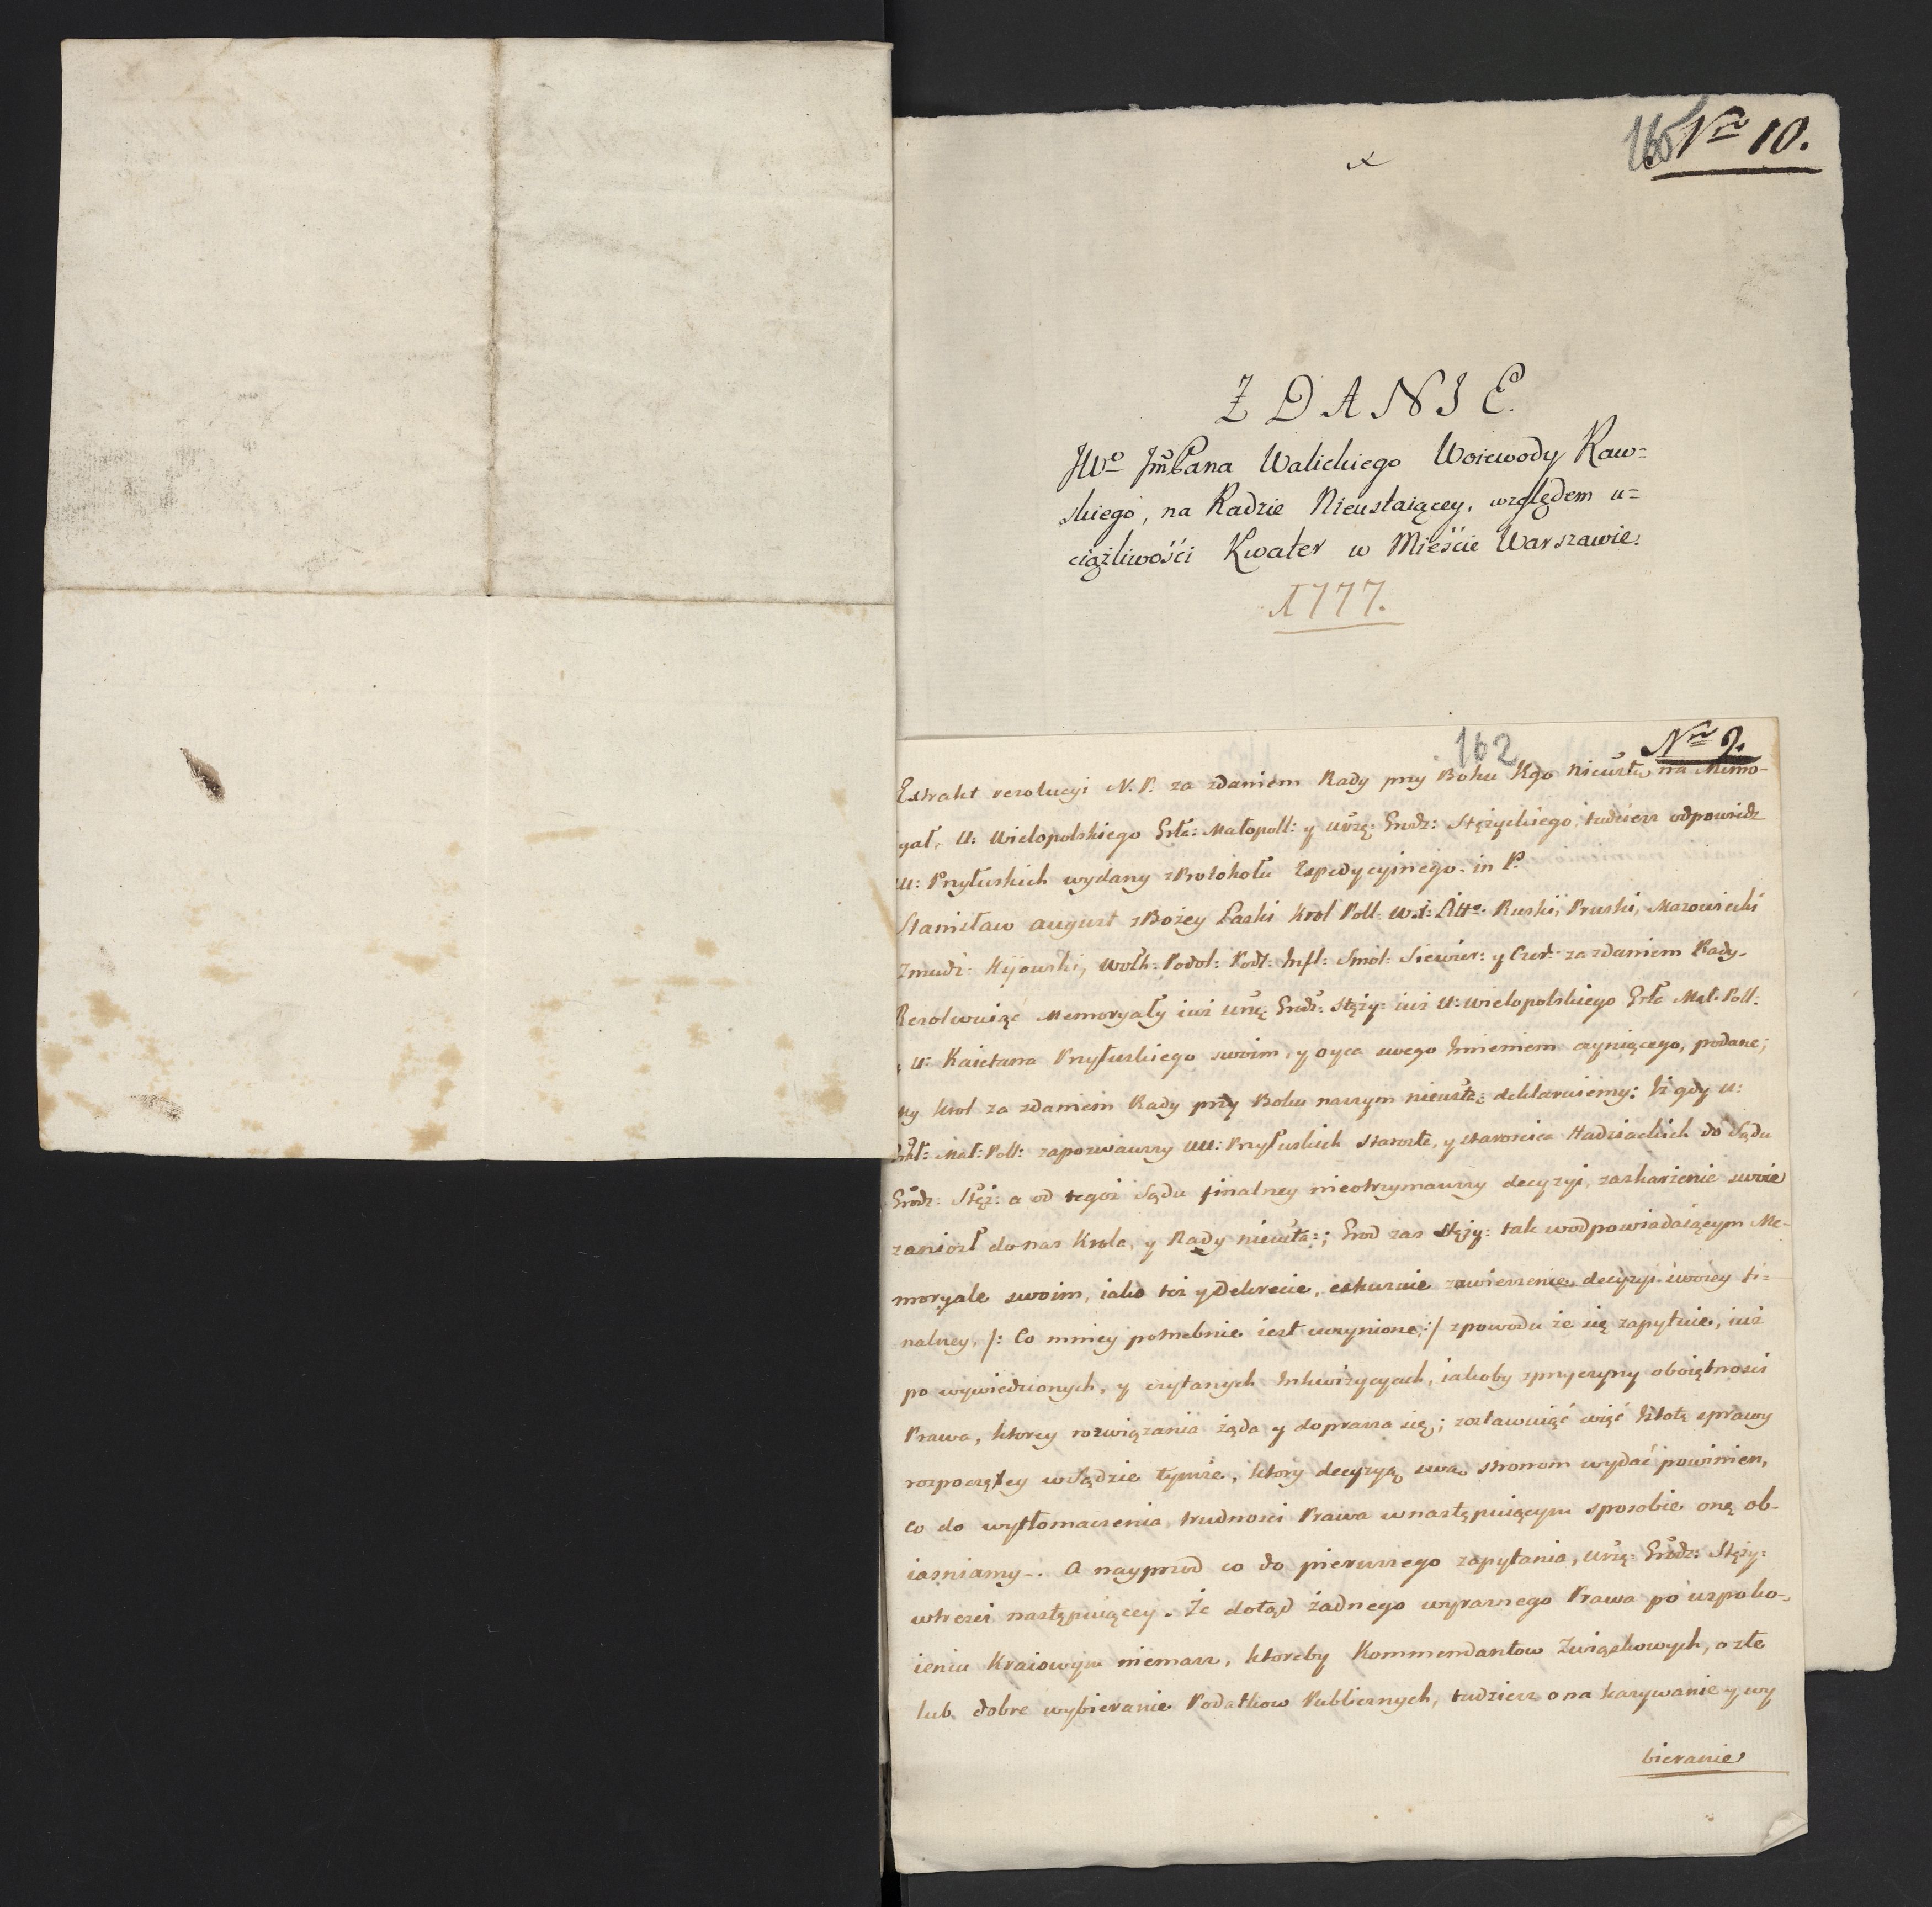 160 Nro 10.
ZDANIE.
JWo JmPana Walickiego Woiewody Raw=
skiego, na Radzie Nieustaiącey, względem u=
ciążliwości Kwater w Mieście Warszawie.
1777.
162 Nro 9.
Extrakt rezolucyi N. P. za zdaniem Rady przy Boku Kgo nieusta: na Memo-
ryał, U: Wielopolskiego Małopoll: y Urzę: Grodz: Stężyckiego, tudziesz odpowiedz
U: Przyłuskich wydany z Protokołu Expedycyinego. in P.
Stanisław August z Bożey Łaski Krol Poll: W.X: Litt: Ruski, Pruski, Mazowiecki
Zmudz: Kijowski, Wołh: Podol: Podl: Infl: Smol: Siewier: y Czer: za zdaniem Rady.
Rezolwuiąc Memoryały iuż Urzę: Grodz: Stęży: iuż U: Wielopolskiego Mał: Poll:
U: Kaietana Przyłuskiego swoim, y oyca swego Imieniem czyniącego, podane;
My Krol za zdaniem Rady przy Boku naszym nieusta: deklaruiemy: Iż gdy U:
Mał: Poll: zapozwawszy UU: Przyłuskich Starostę, y Starościca Hadziackich do Sądu
Grodz: Stęż: a od tegoż Sądu finalney nieotrzymawszy decyzyi, zaskarżenie swoie
zaniosł do nas Krola, y Rady nieusta:; Grod zas Stęży: tak w odpowiadaiącym Me-
moryale swoim, iako też y Dekrecie, exkuzuie zawieszenie decyzyi swoiey fi=
nalney, /: Co mniey potrzebnie iest uczynione :/ z powodu że się zapytuie, iuż
po wywiedzionych, y czytanych Inkwizycyach, iakoby z przyczyny oboiętności
Prawa, ktorey rozwiązania żąda y doprasza się; zostawuiąc więc Istotę sprawy
rozpoczętey w Sądzie tymże, ktory decyzyą swą stronom wydać powinien,
co do wytłomaczenia trudności Prawa w następuiącym sposobie onę ob-
iasniamy. A nayprzod co do pierwszego zapytania, Urzę: Grodz: Stęży:
w treści następuiącey. Że dotąd żadnego wyraznego Prawa po uspoko-
ieniu Kraiowym niemasz, ktoreby Kommendantow Związkowych, o złe
lub dobre wybieranie Podatkow Publicznych, tudziesz o nakazywanie y wy
bieranie